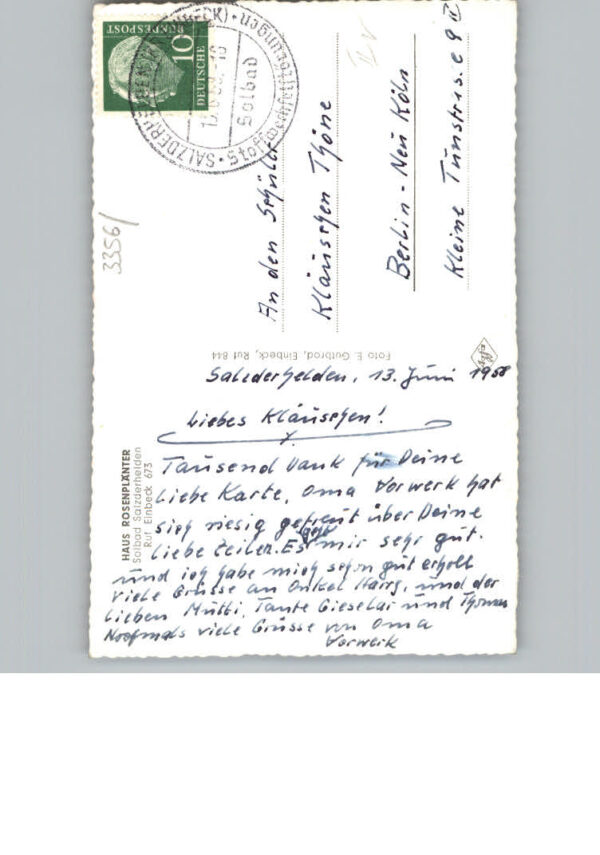 HAUS ROSENPLÄNTER
Solbad Salzderhelden
Ruf Einbeck 673
Salzderhelden, 13. Juni 1958
Liebes Kläuschen!
Tausend Dank für Deine
liebe Karte, Oma Vorwerk hat
sich riesig gefreut über Deine
liebe Zeilen. Es geht mir sehr gut.
und ich habe mich schon gut erholt
viele Grüsse an Onkel Harry, und der
lieben Mutti, Tante und Thomas
Nochmals viele Grüsse von Oma
Vorwerk
Foto E. Gutbrod, Einbeck, Ruf 844
Agfa
An den Schüler
Kläuschen Thöne
Berlin - Neu Köln
Kleine 9 II
DEUTSCHE
BUNDESPOST
10
SALZDERHELDEN
Solbad
Stoffwechselstörungen
3356/